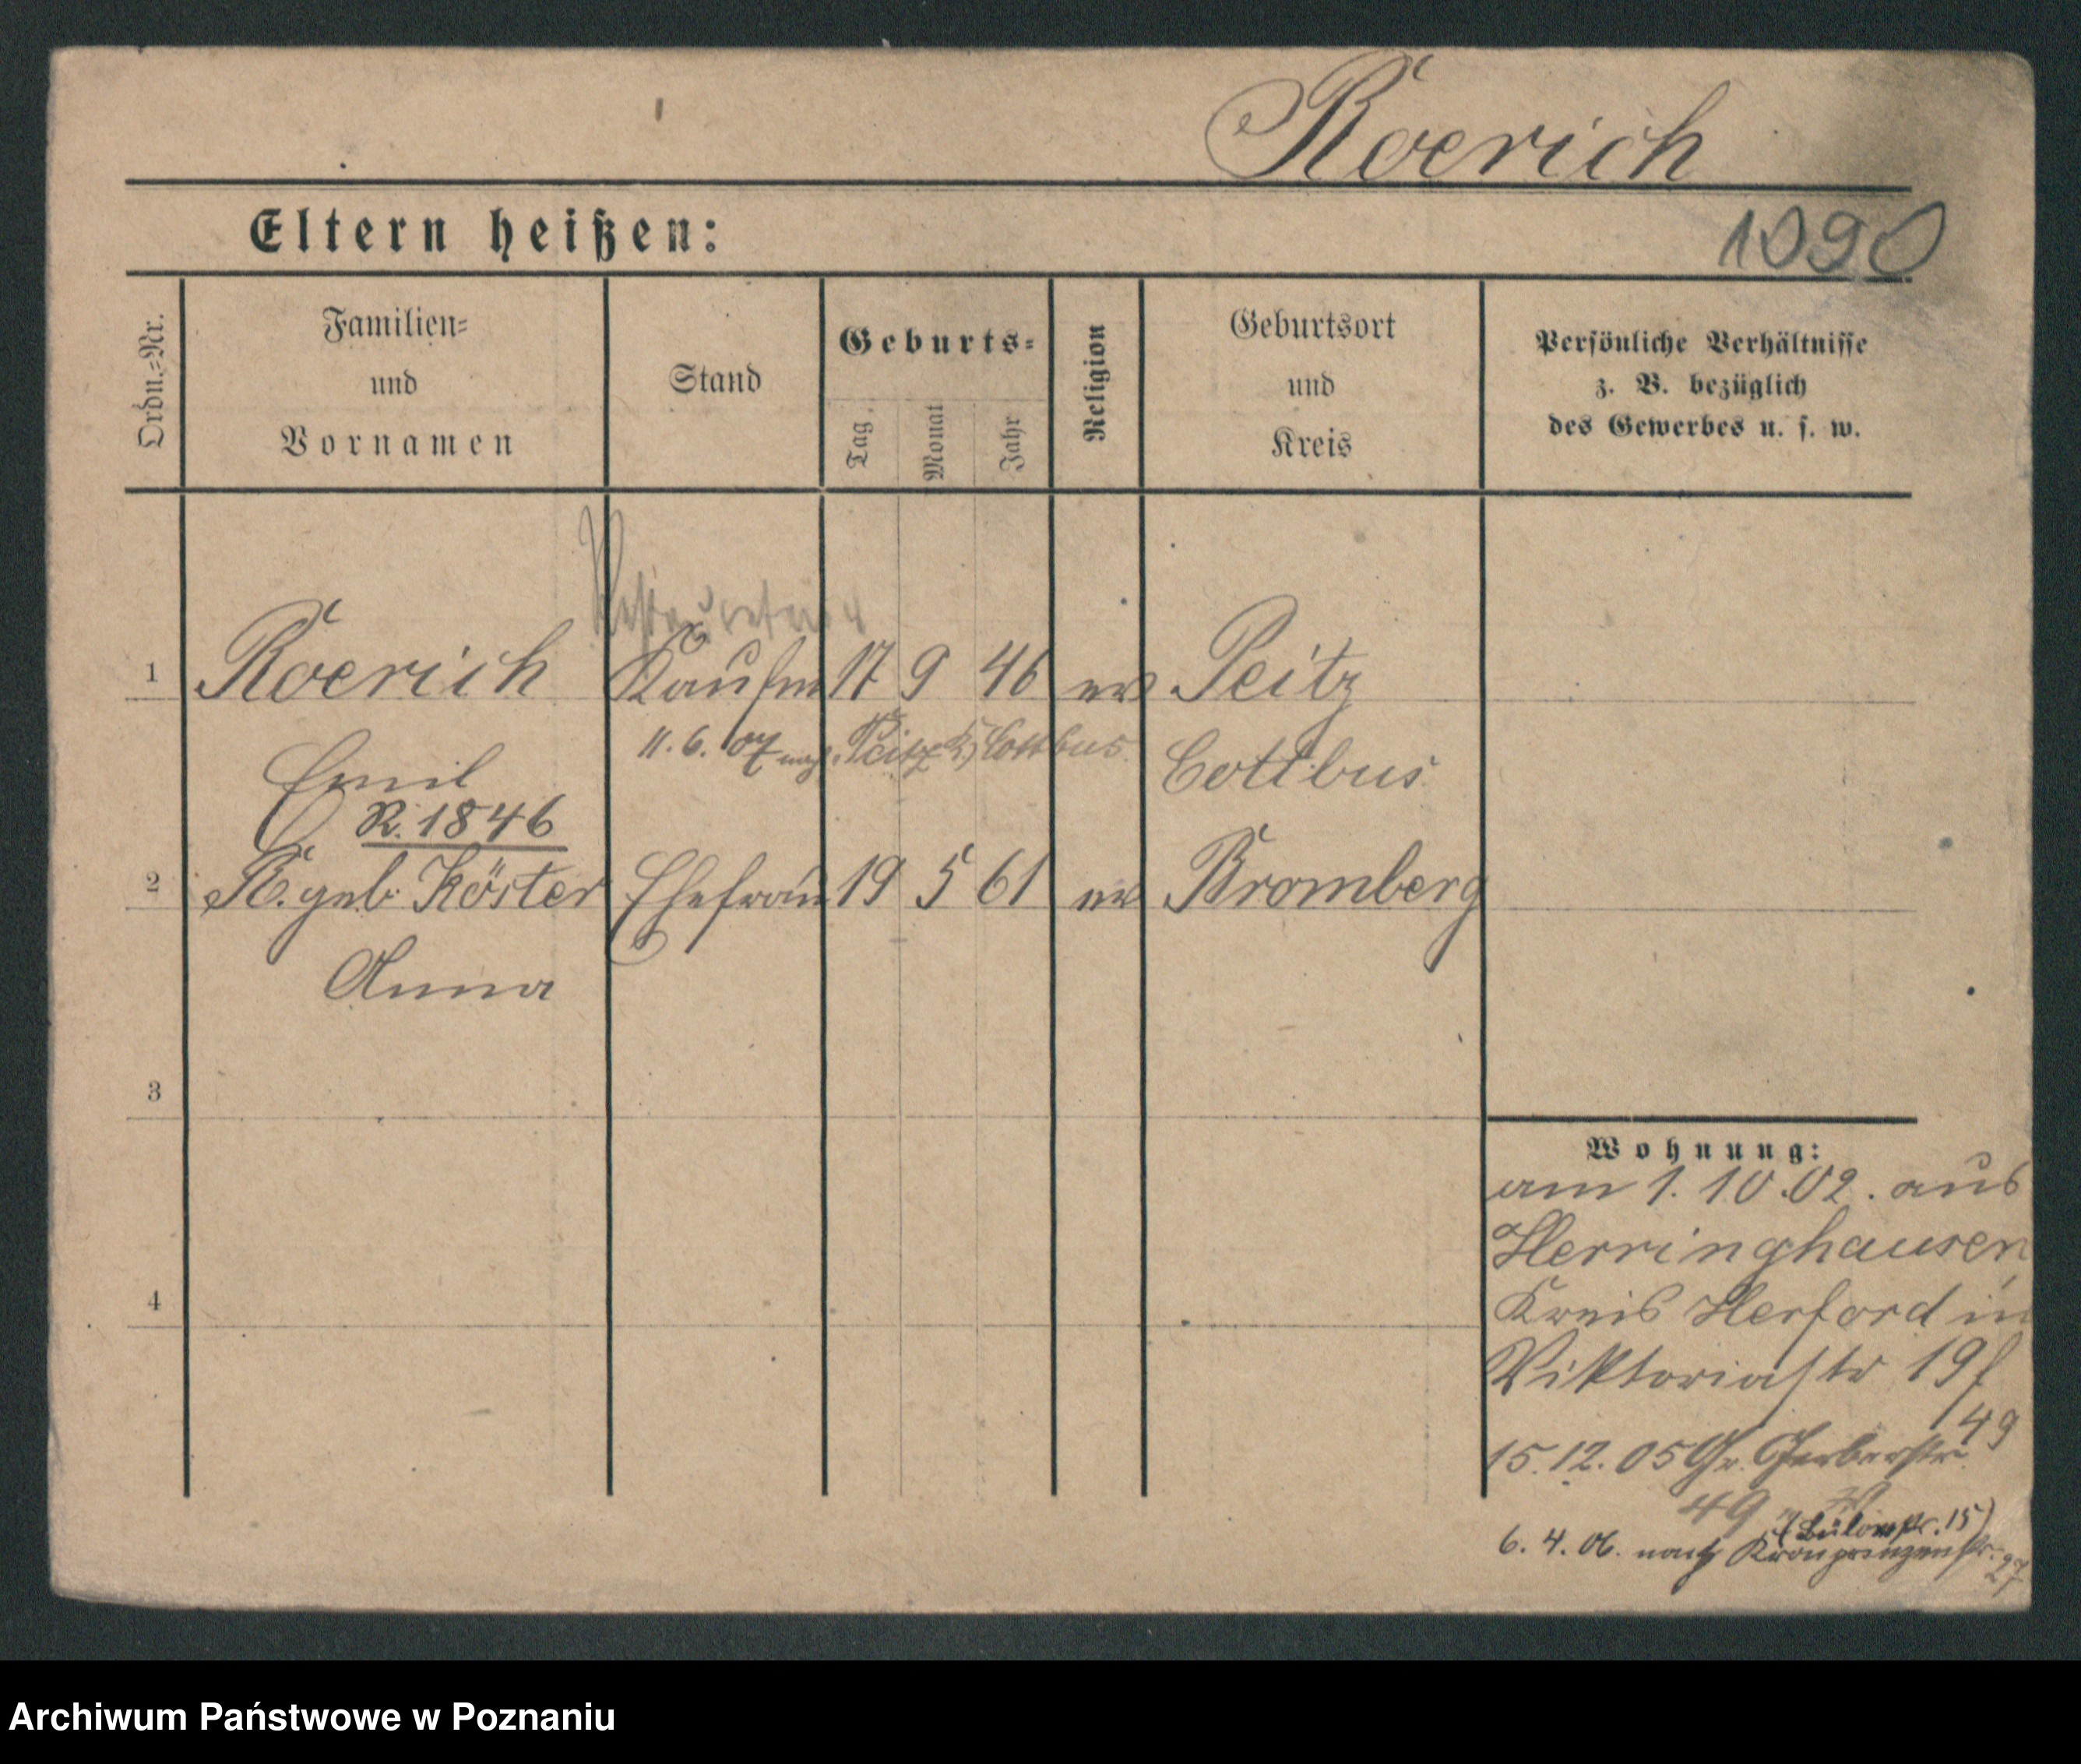 Roerich
Eltern heißen:
1090
Ordn.=Nr.
Familien=
und
Vornamen
Stand
Geburts=
Tag.
Monat
Jahr
Religion
Geburtsort
und
Kreis
Persönliche Verhältnisse
z. B. bezüglich
des Gewerbes u. s. w.
1 Roerich Kaufm 17 9 46 ev Peitz
11. 6. 07 nach Peitz Kr. Cottbus
Emil Cottbus
R. 1846
2 R. geb. Köster Ehefrau 19 5 61 ev Bromberg
Anna
3
4
Wohnung:
am 1. 10. 02. aus
Herringhausen
Kreis Herford in
Viktoriastr 19
49
15. 12. 05 Gr. Gerberstr.
49
(Bülowstr. 15)
6. 4. 06. nach Kronprinzenstr. 27
Archiwum Państwowe w Poznaniu